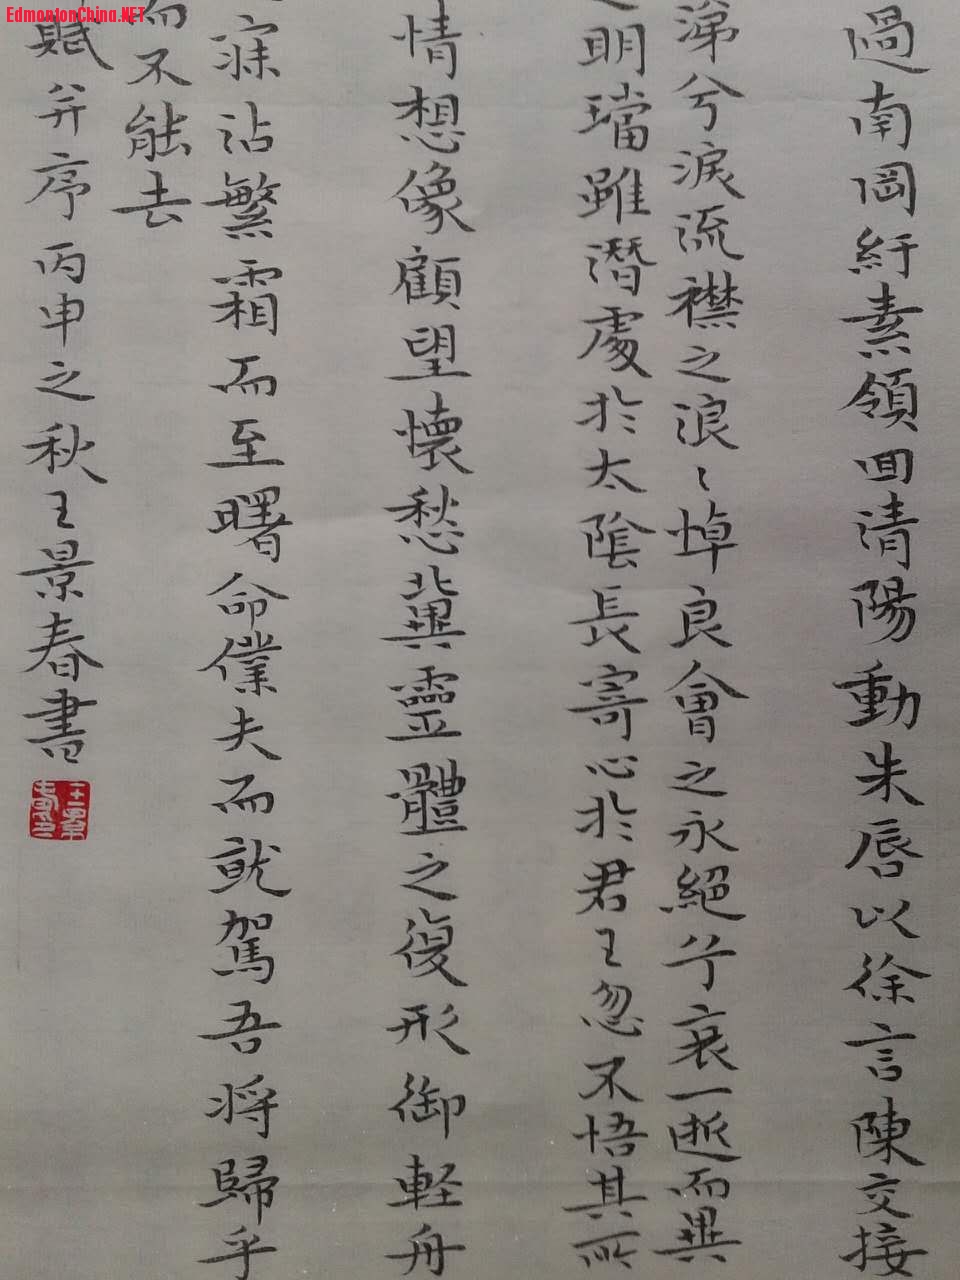 EdmontonChina.NET
過南岡紆素領回清陽動朱唇以徐言陳交接
涕兮淚流襟之浪〻悼良會之永絕兮哀一逝而異
明璫雖潛處於太陰長寄心於君王忽不悟其所
情想像顧望懷愁冀靈體之復形御輕舟
寐沾繁霜而至曙命僕夫而就駕吾將歸乎
而不能去
賦并序丙申之秋王景春書